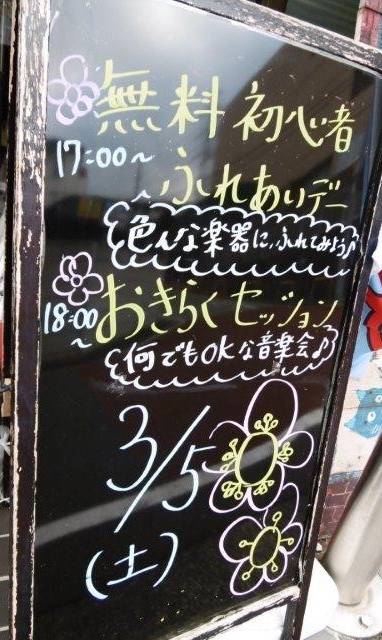 無料 初心者
17:00～
ふれあいデー
色んな楽器に、ふれてみよう♪
おきらくセッション
18:00～
何でもOKな音楽会♪
3/5
(土)